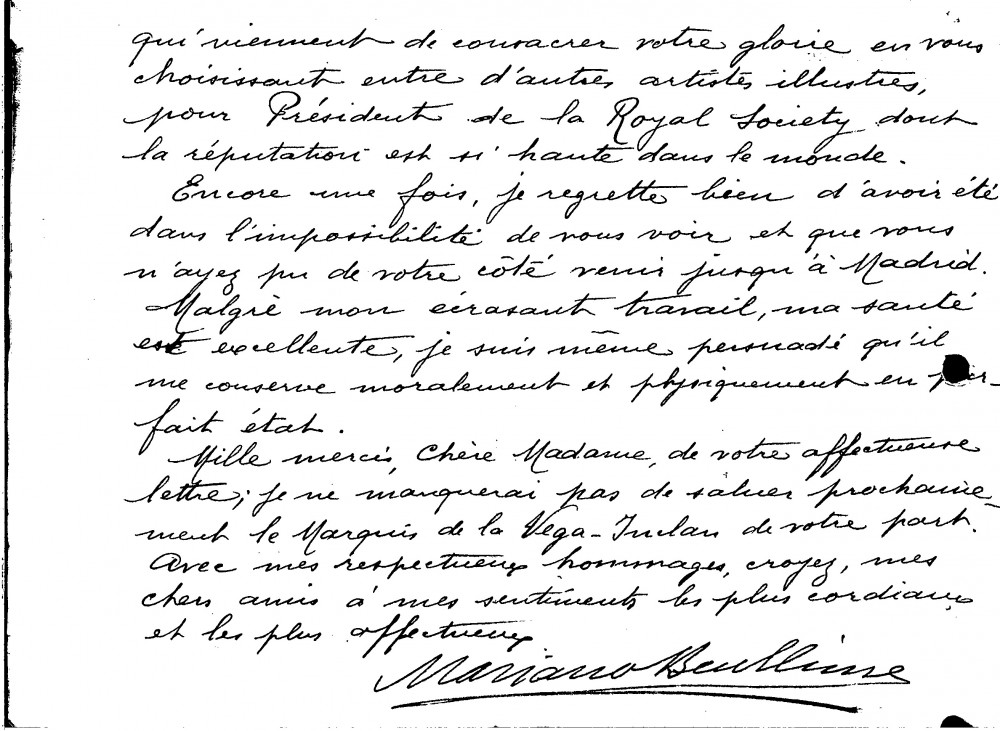 qui viennent de consacrer votre gloire en vous
choisissant entre d'autres artistes illustres,
pour Président de la Royal Society dont
la réputation est si haute dans le monde.
Encore une fois, je regrette bien d'avoir été
dans l'impossibilité de vous voir et que vous
n'ayez pu de votre côté venir jusqu'à Madrid.
Malgrè mon écrasant travail, ma santé
est excellente, je suis même persuadé qu'il
me conserve moralement et physiquement en par-
fait état.
Mille mercis, Chère Madame, de votre affectueuse
lettre; je ne manquerai pas de saluer prochaine-
ment le Marquis de la Vega-Inclan de votre part.
Avec mes respectueux hommages, croyez, mes
chers amis à mes sentiments les plus cordiaux
et les plus affectueux
Mariano Benlliure